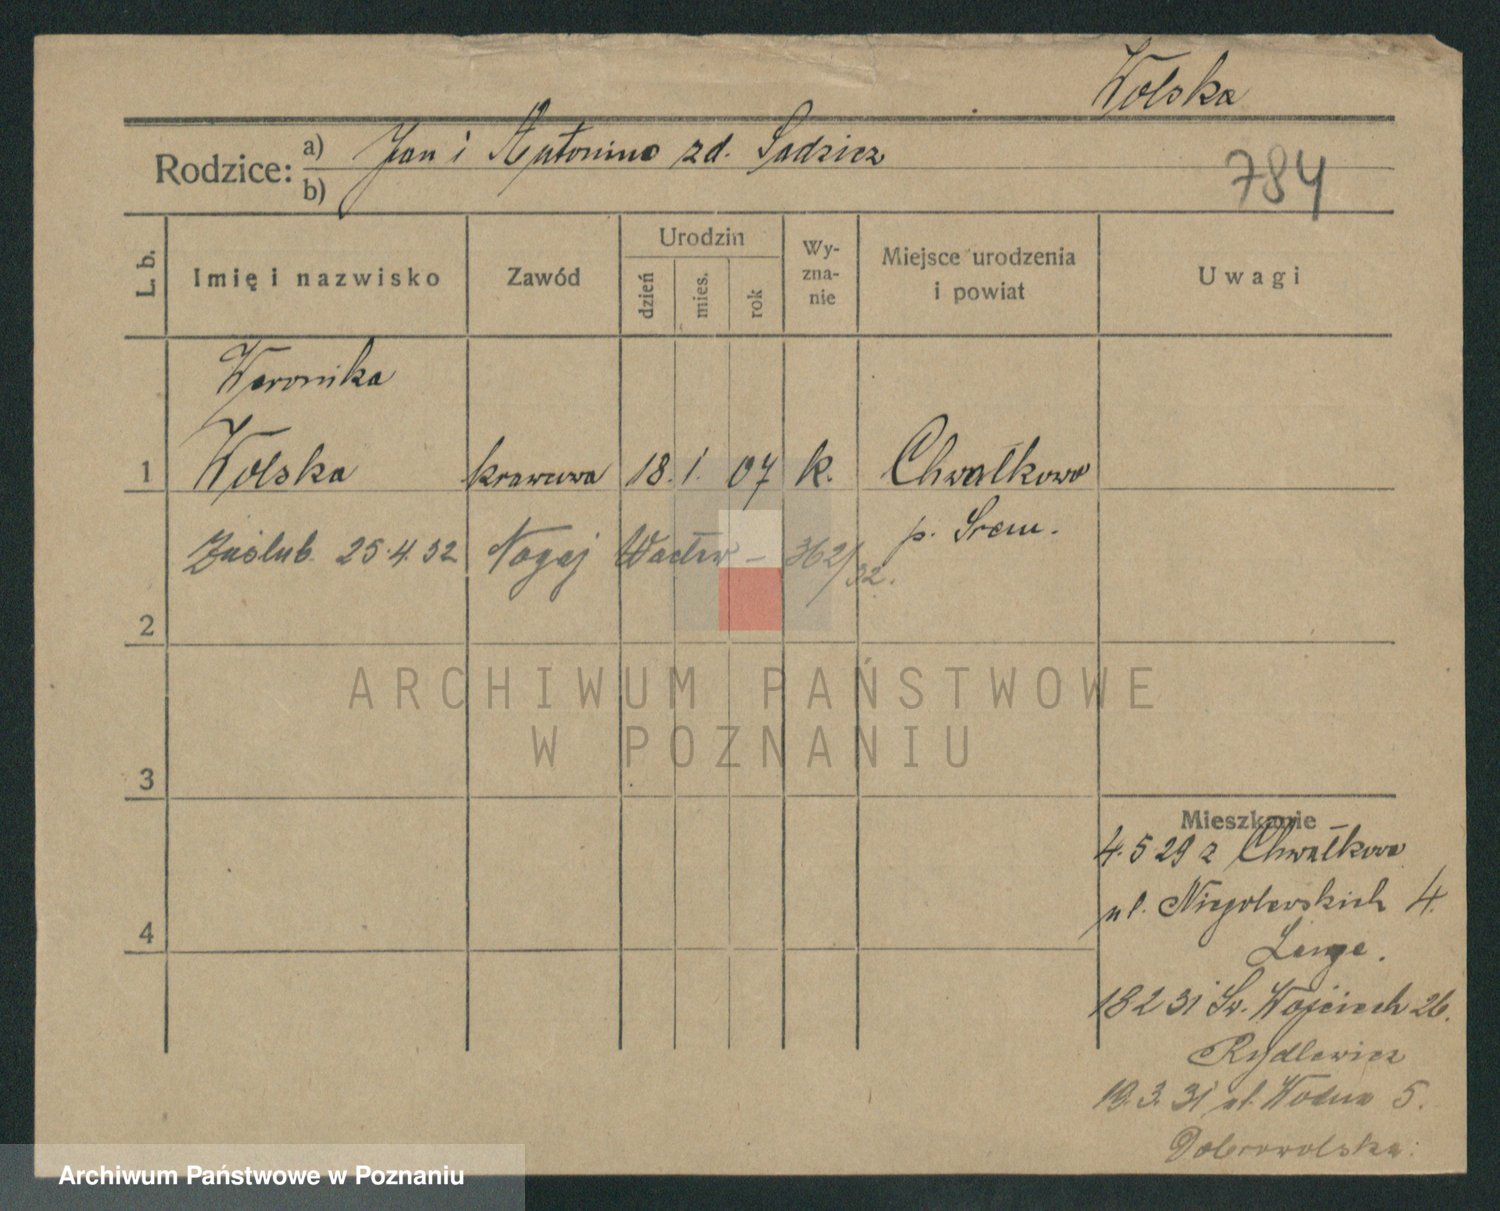 Wolska
Rodzice: a) Jan i Antonina zd. Sadzicz
b)
784
L. b.
Imię i nazwisko
Zawód
Urodzin
dzień
mies.
rok
Wy-
zna-
nie
Miejsce urodzenia
i powiat
Uwagi
Weronika
1 Wolska krawcowa 18. 1. 07 k. Chwałkowo
p. Śrem.
Zaślub. 25.4.32 Nogaj Wacław – 362/32.
2
3
4
Mieszkanie
4.5 29 z Chwałkowa
ul. Niegolewskich 4.
Lange.
18 2 31 Św. Wojciech 26.
Rydlewicz
19.3.31 ul. Wodna 5.
Dobrowolska.
ARCHIWUM PAŃSTWOWE
W POZNANIU
Archiwum Państwowe w Poznaniu